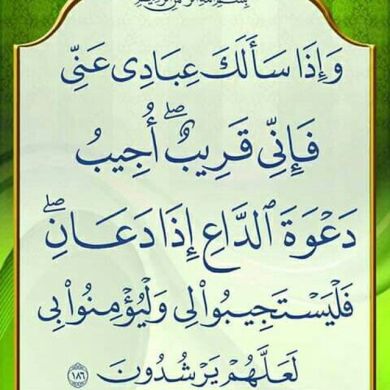 بِسْمِ اللَّهِ الرَّحْمَٰنِ الرَّحِيمِ
وَإِذَا سَأَلَكَ عِبَادِى عَنِّى
فَإِنِّى قَرِيبٌ ۖ أُجِيبُ
دَعْوَةَ ٱلدَّاعِ إِذَا دَعَانِ ۖ
فَلْيَسْتَجِيبُوا۟ لِى وَلْيُؤْمِنُوا۟ بِى
لَعَلَّهُمْ يَرْشُدُونَ ١٨٦